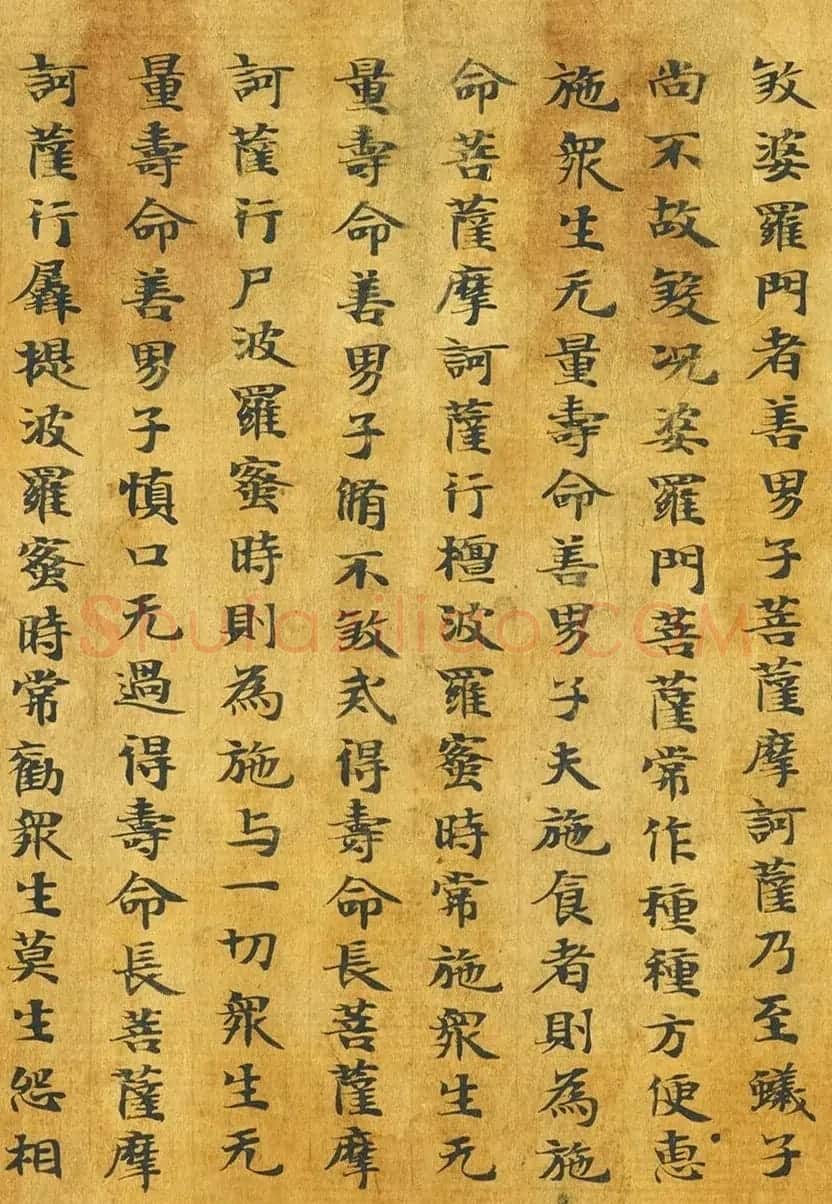 煞婆羅門者善男子菩薩摩訶薩乃至蟻子
尚不故煞况婆羅門菩薩常作種種方便惠
施衆生无量壽命善男子夫施食者則為施
命菩薩摩訶薩行檀波羅蜜時常施衆生无
量壽命善男子脩不煞戒得壽命長菩薩摩
訶薩行尸波羅蜜時則為施与一切衆生无
量壽命善男子慎口无過得壽命長菩薩摩
訶薩行羼提波羅蜜時常勸衆生莫生怨相
Shufaziliao.COM